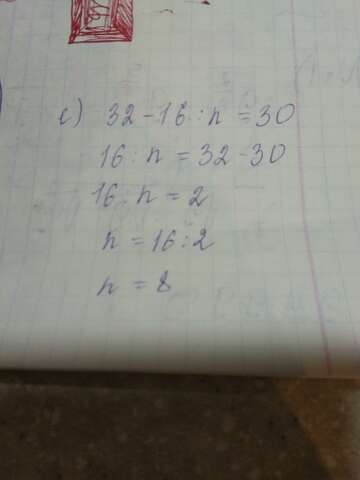 c) 32-16:n=30
16:n=32-30
16:n=2
n=16:2
n=8